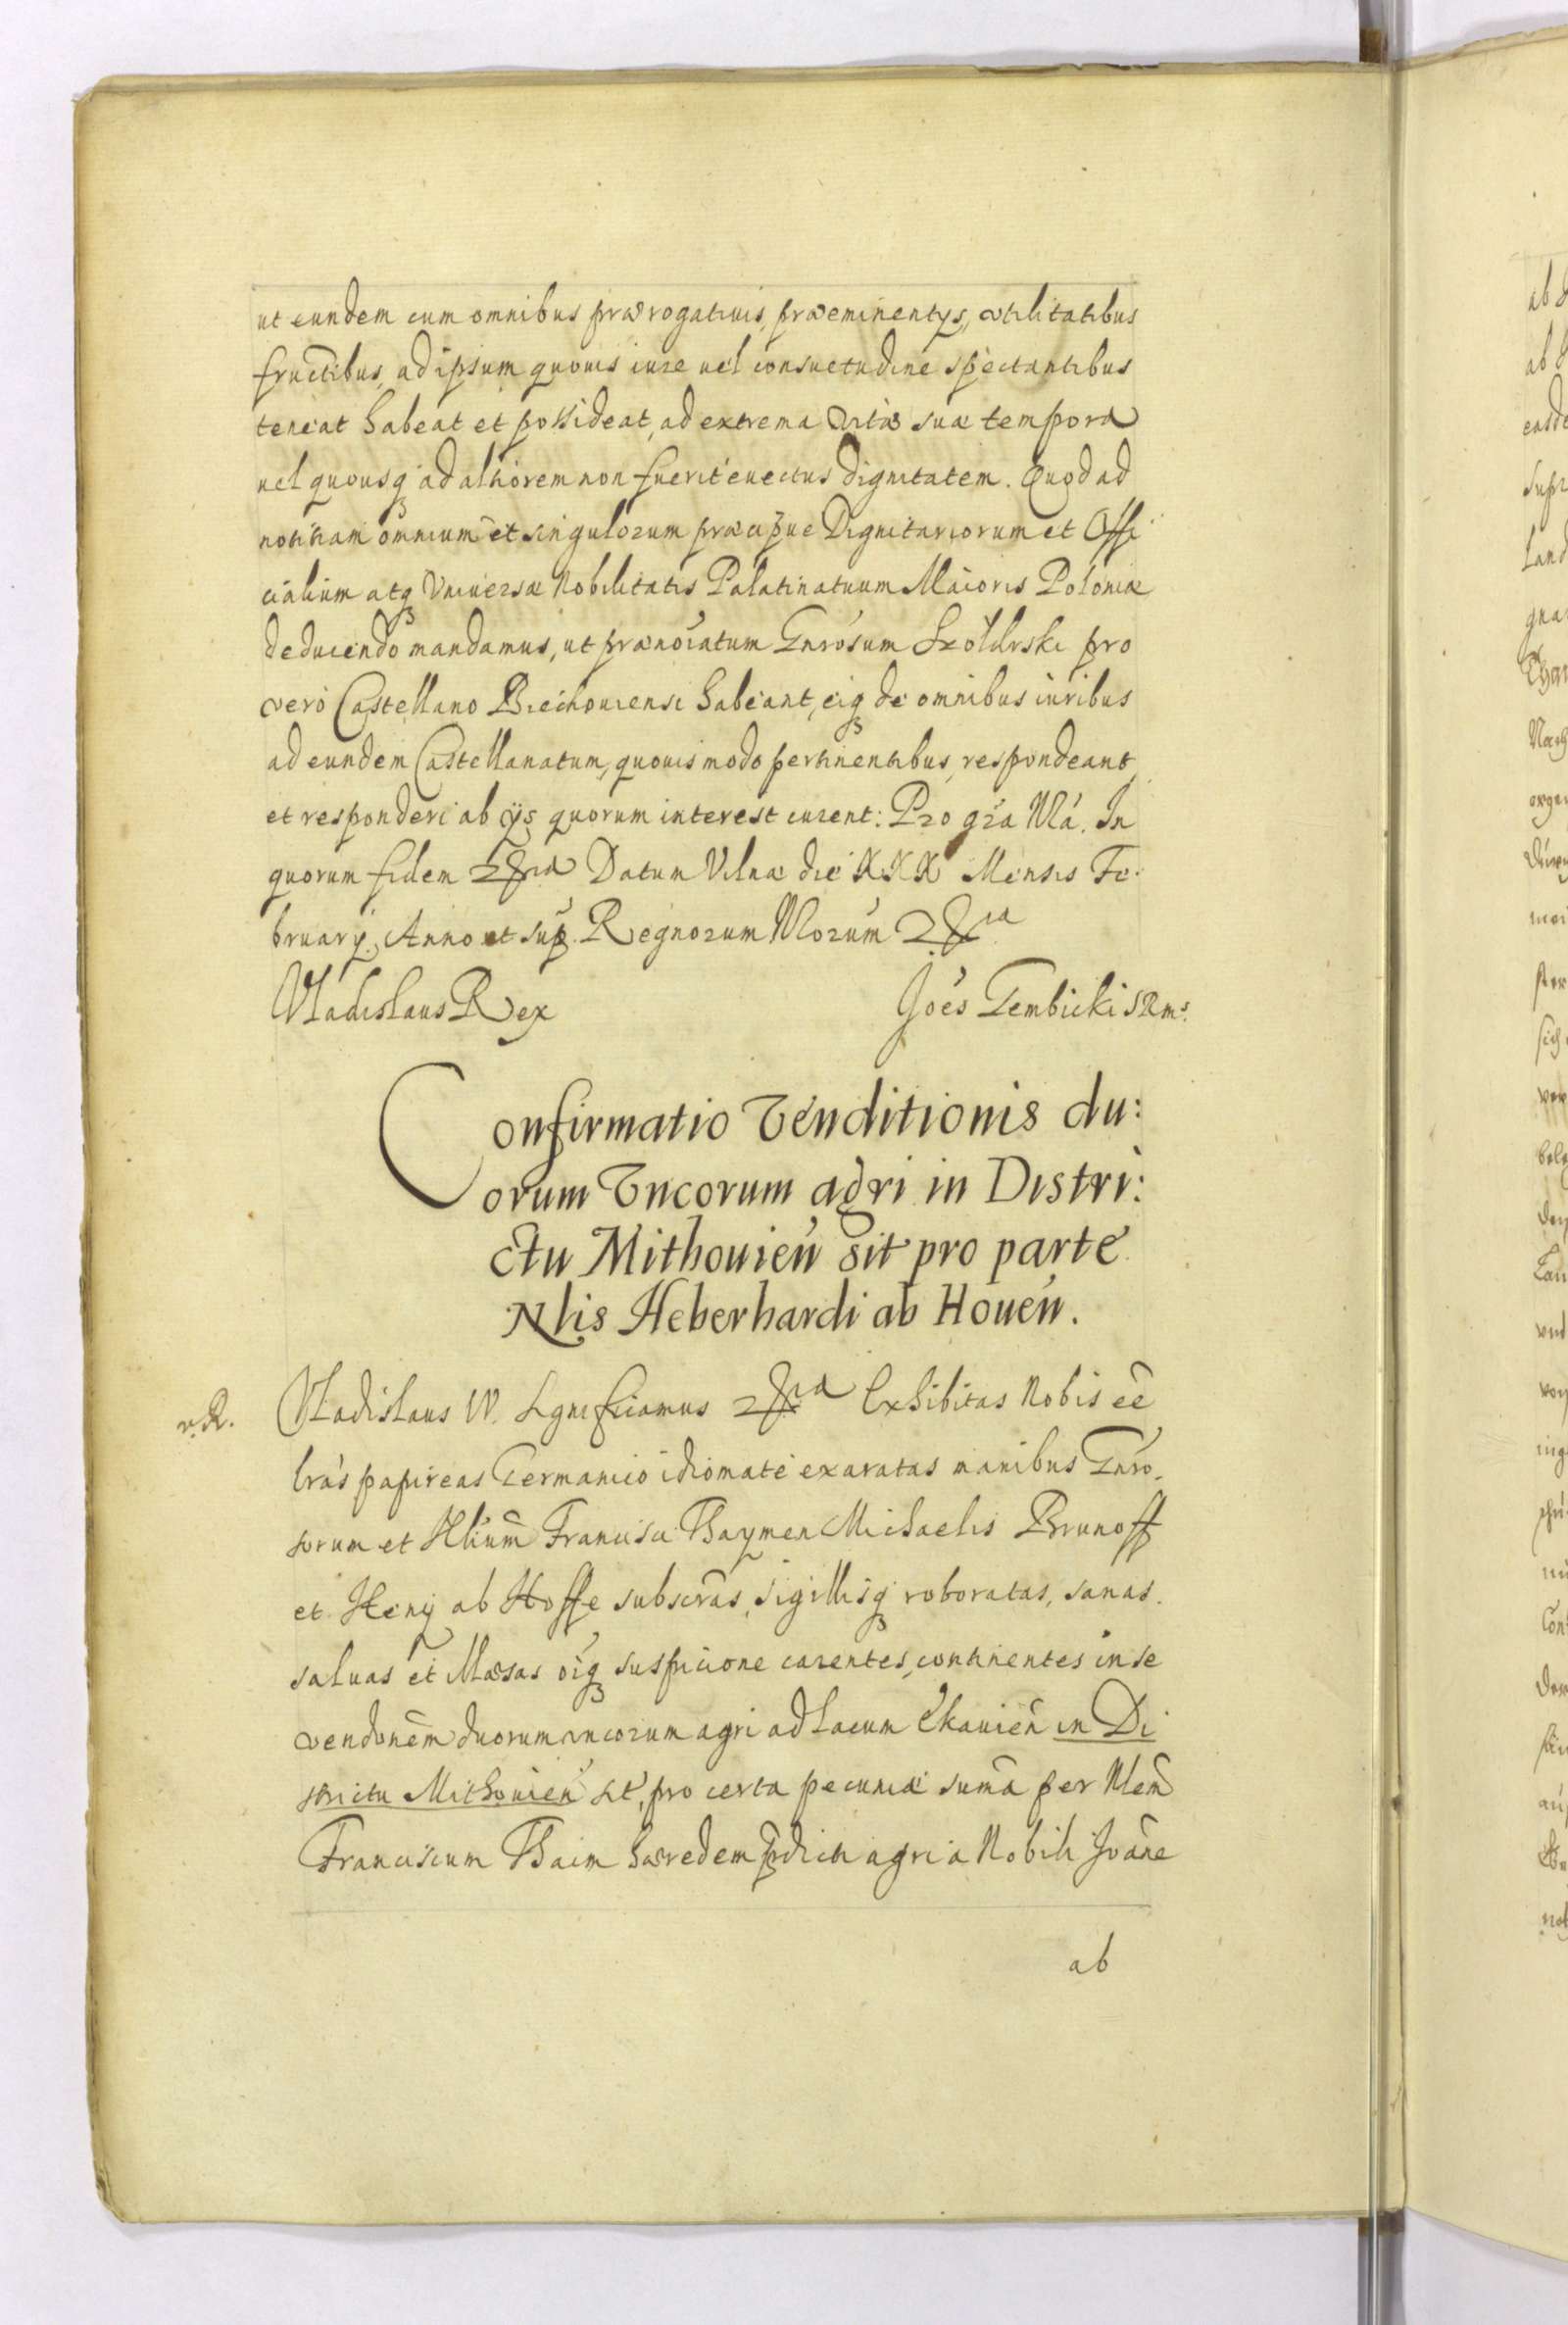 ut eundem cum omnibus prærogatiuis, præeminentijs, vtilitatibus
fructibus, ad ipsum quouis iure uel consuetudine spectantibus
teneat habeat et possideat, ad extrema vitæ suæ tempora
uel quousq; ad altiorem non fuerit euectus dignitatem. Quod ad
notitiam omnium et singulorum præcipue Dignitariorum et Offi
cialium atq; Vniuersæ Nobilitatis Palatinatuum Maioris Poloniæ
deducendo mandamus, ut prænoiatum Gnrosum Szoldrski pro
vero Castellano Biechouiensi habeant, eiq; de omnibus iuribus
ad eundem Castellanatum, quouis modo pertinentibus, respondeant
et responderi ab ijs quorum interest curent: Pro gra Nra. In
quorum fidem Datum Vilnæ die XXX Mensis Fe-
bruarij, Anno ut sup. Regnorum Nrorum
Vladislaus Rex
Joes Gembicki SRMs.
Confirmatio Venditionis du:
orum Vncorum agri in Distri:
ctu Mithouien sit pro parte
Nlis Heberhardi ab Houen.
Vladislaus IV. Significamus Exhibitas Nobis ee
lras papireas Germanico idiomate exaratas manibus Gnro-
sorum et Nlium Francisci Thaymen Michaelis Brunoff
et Henij ab Hoffe subscras, sigillisq; roboratas, sanas.
saluas et illæsas oiq; suspicione carentes, continentes in se
vendonem duorum vncorum agri ad lacum Ekauien in Di
strictu Mithouien sit, pro certa pecuniæ suma per Nlem
Franciscum Thaim hæredem pdicti agri a Nobili Joane
ab